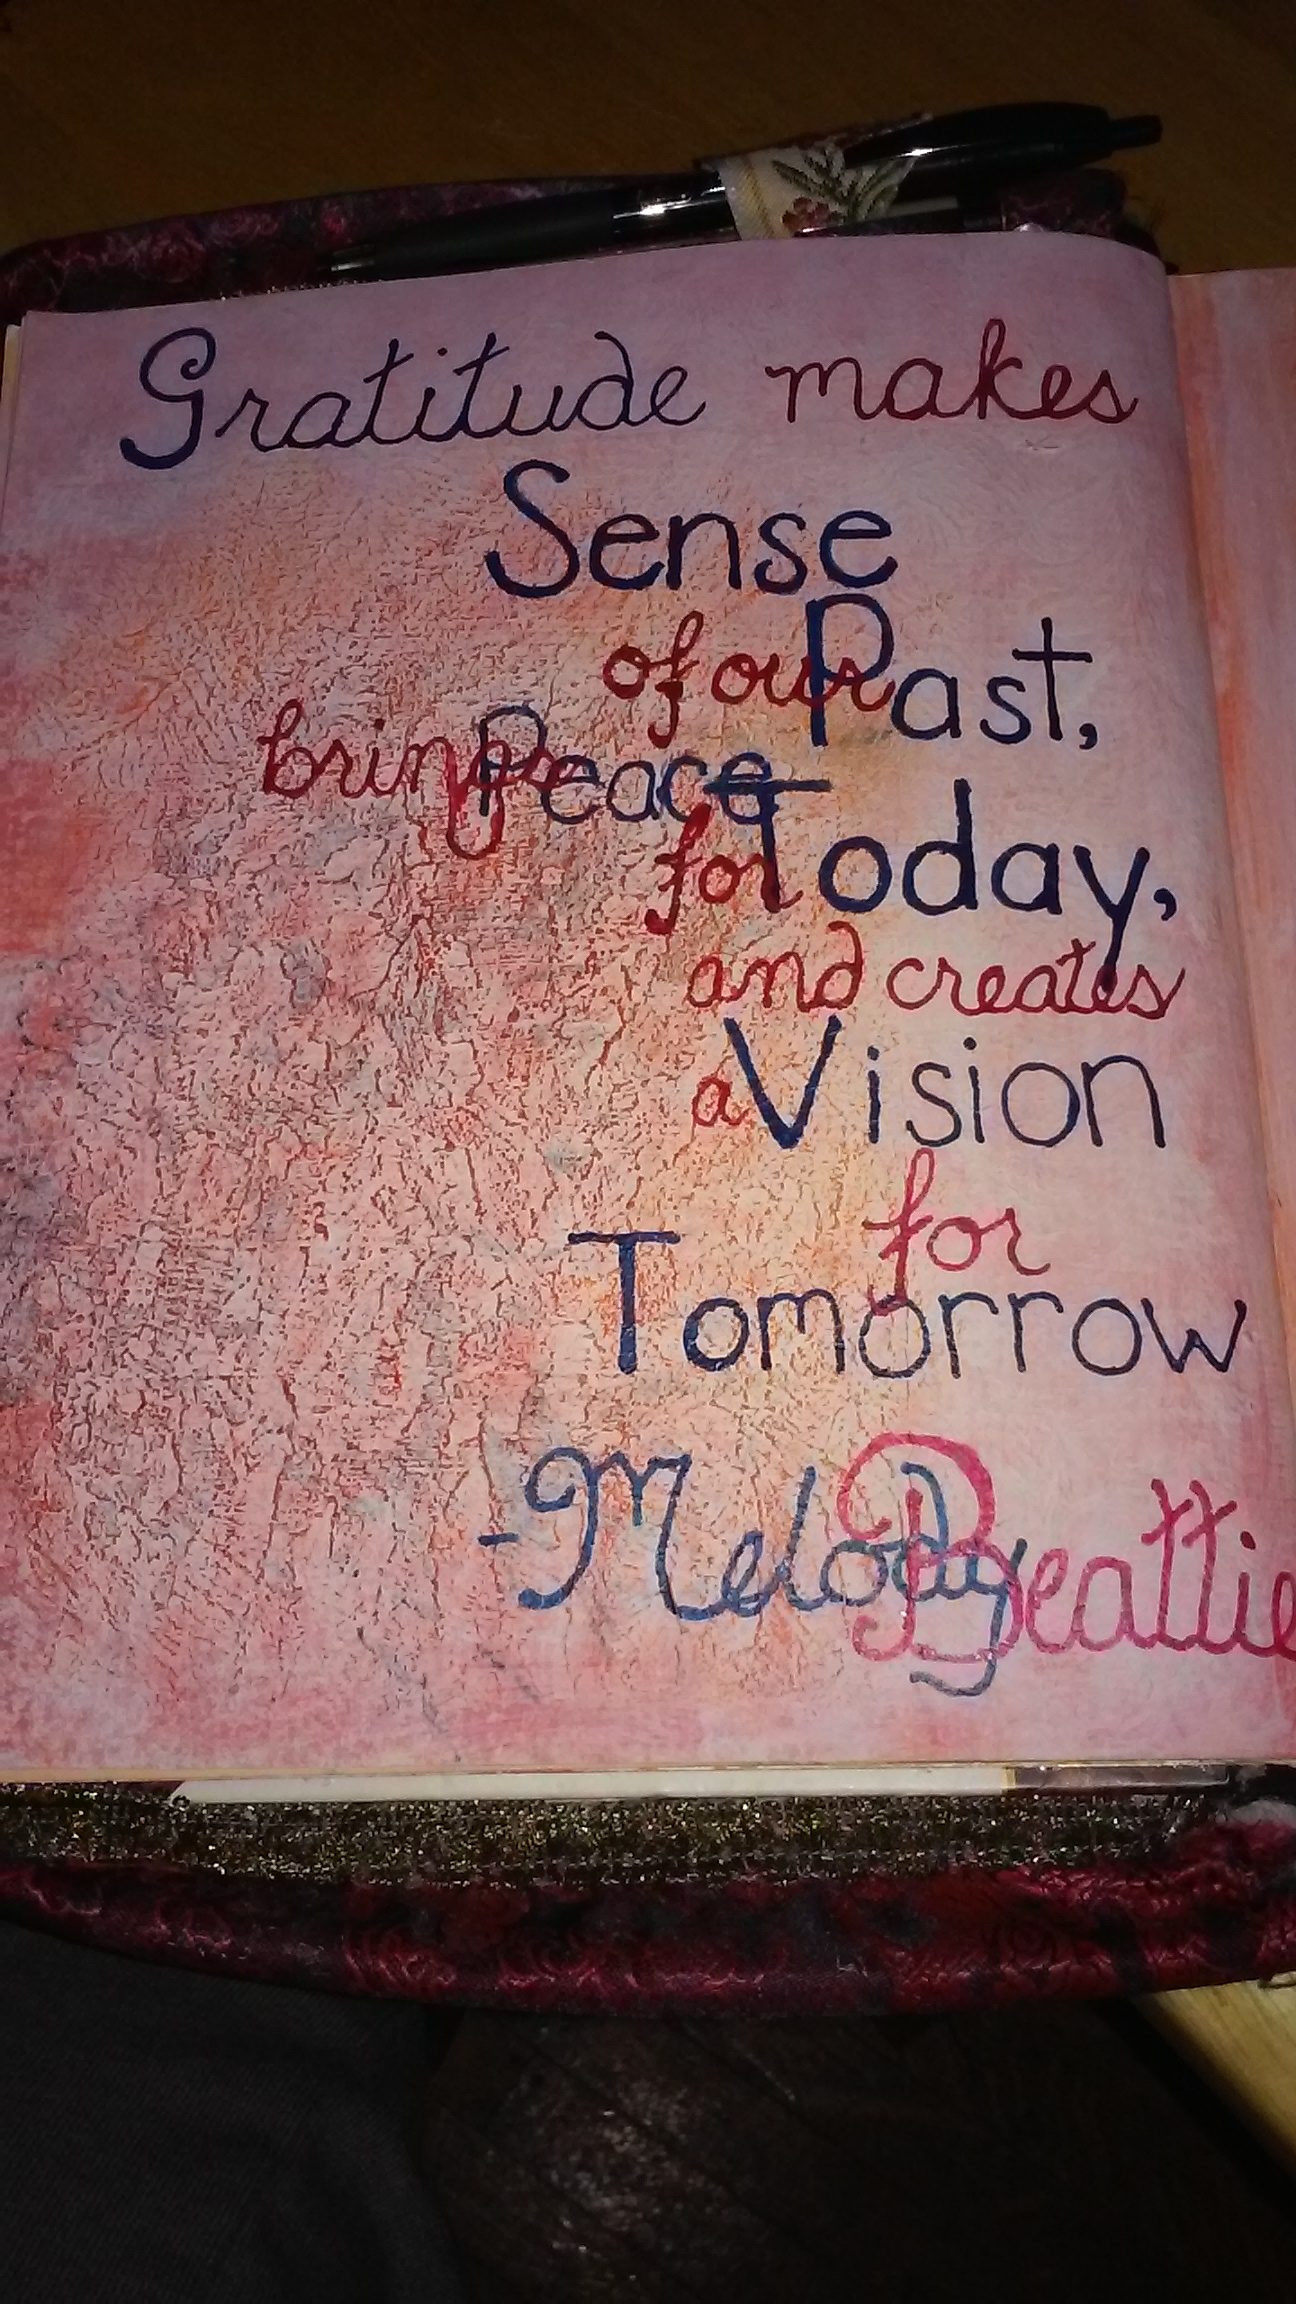 Gratitude makes
Sense
of our Past,
brings Peace
for Today,
and creates
a Vision
for
Tomorrow
-Melody Beattie